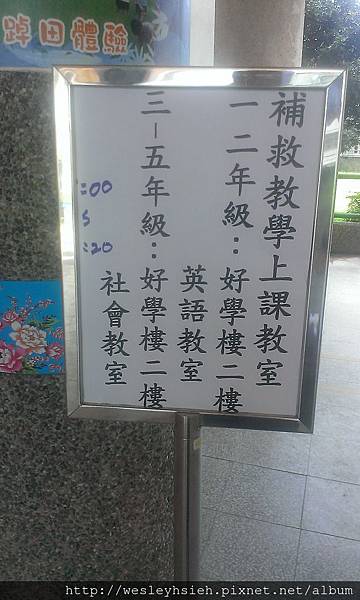 踔田體驗
補救教學上課教室
一二年級：好學樓二樓
英語教室
三–五年級：好學樓二樓
社會教室
:00
:20
http://wesleyhsieh.pixnet.net/album